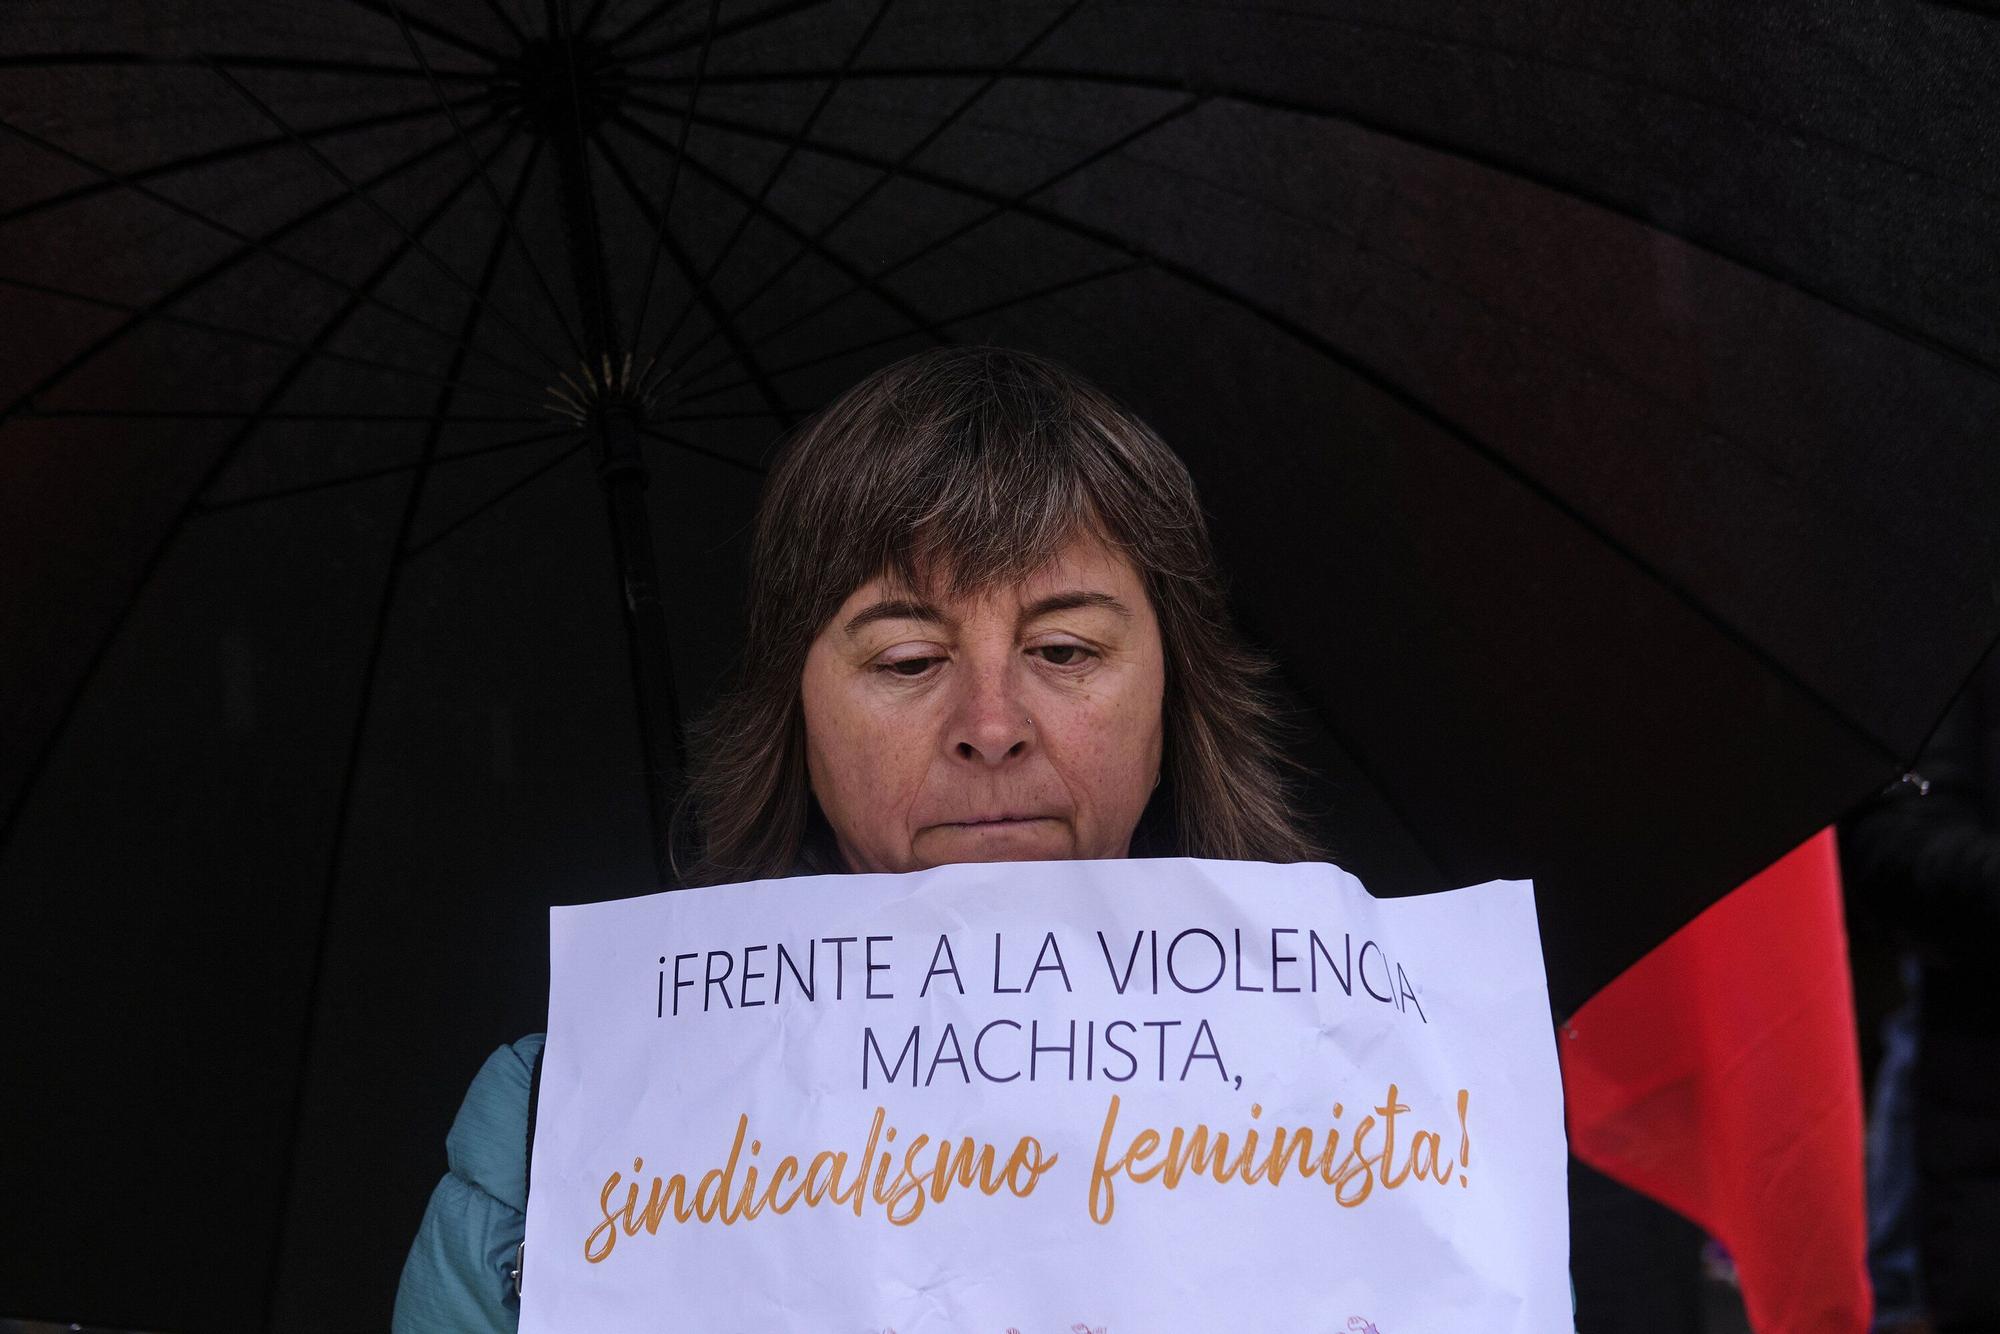 ¡FRENTE A LA VIOLENCIA
MACHISTA,
sindicalismo feminista!